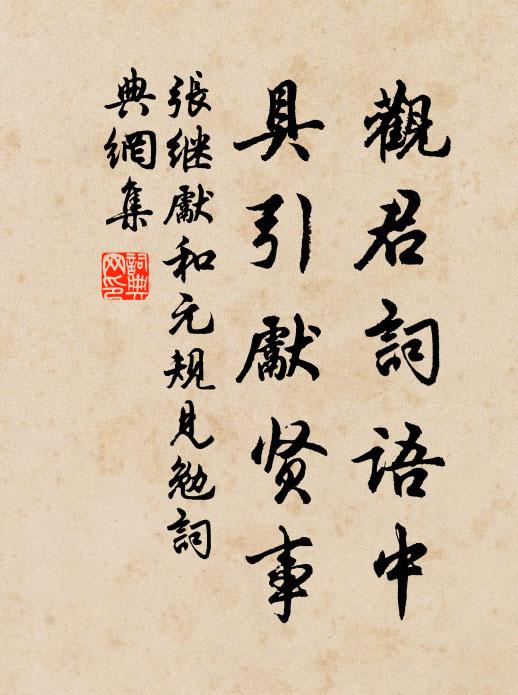 觀君詞语中
具引獻贤事
張继獻和元規見勉詞
典網集
詞典網印